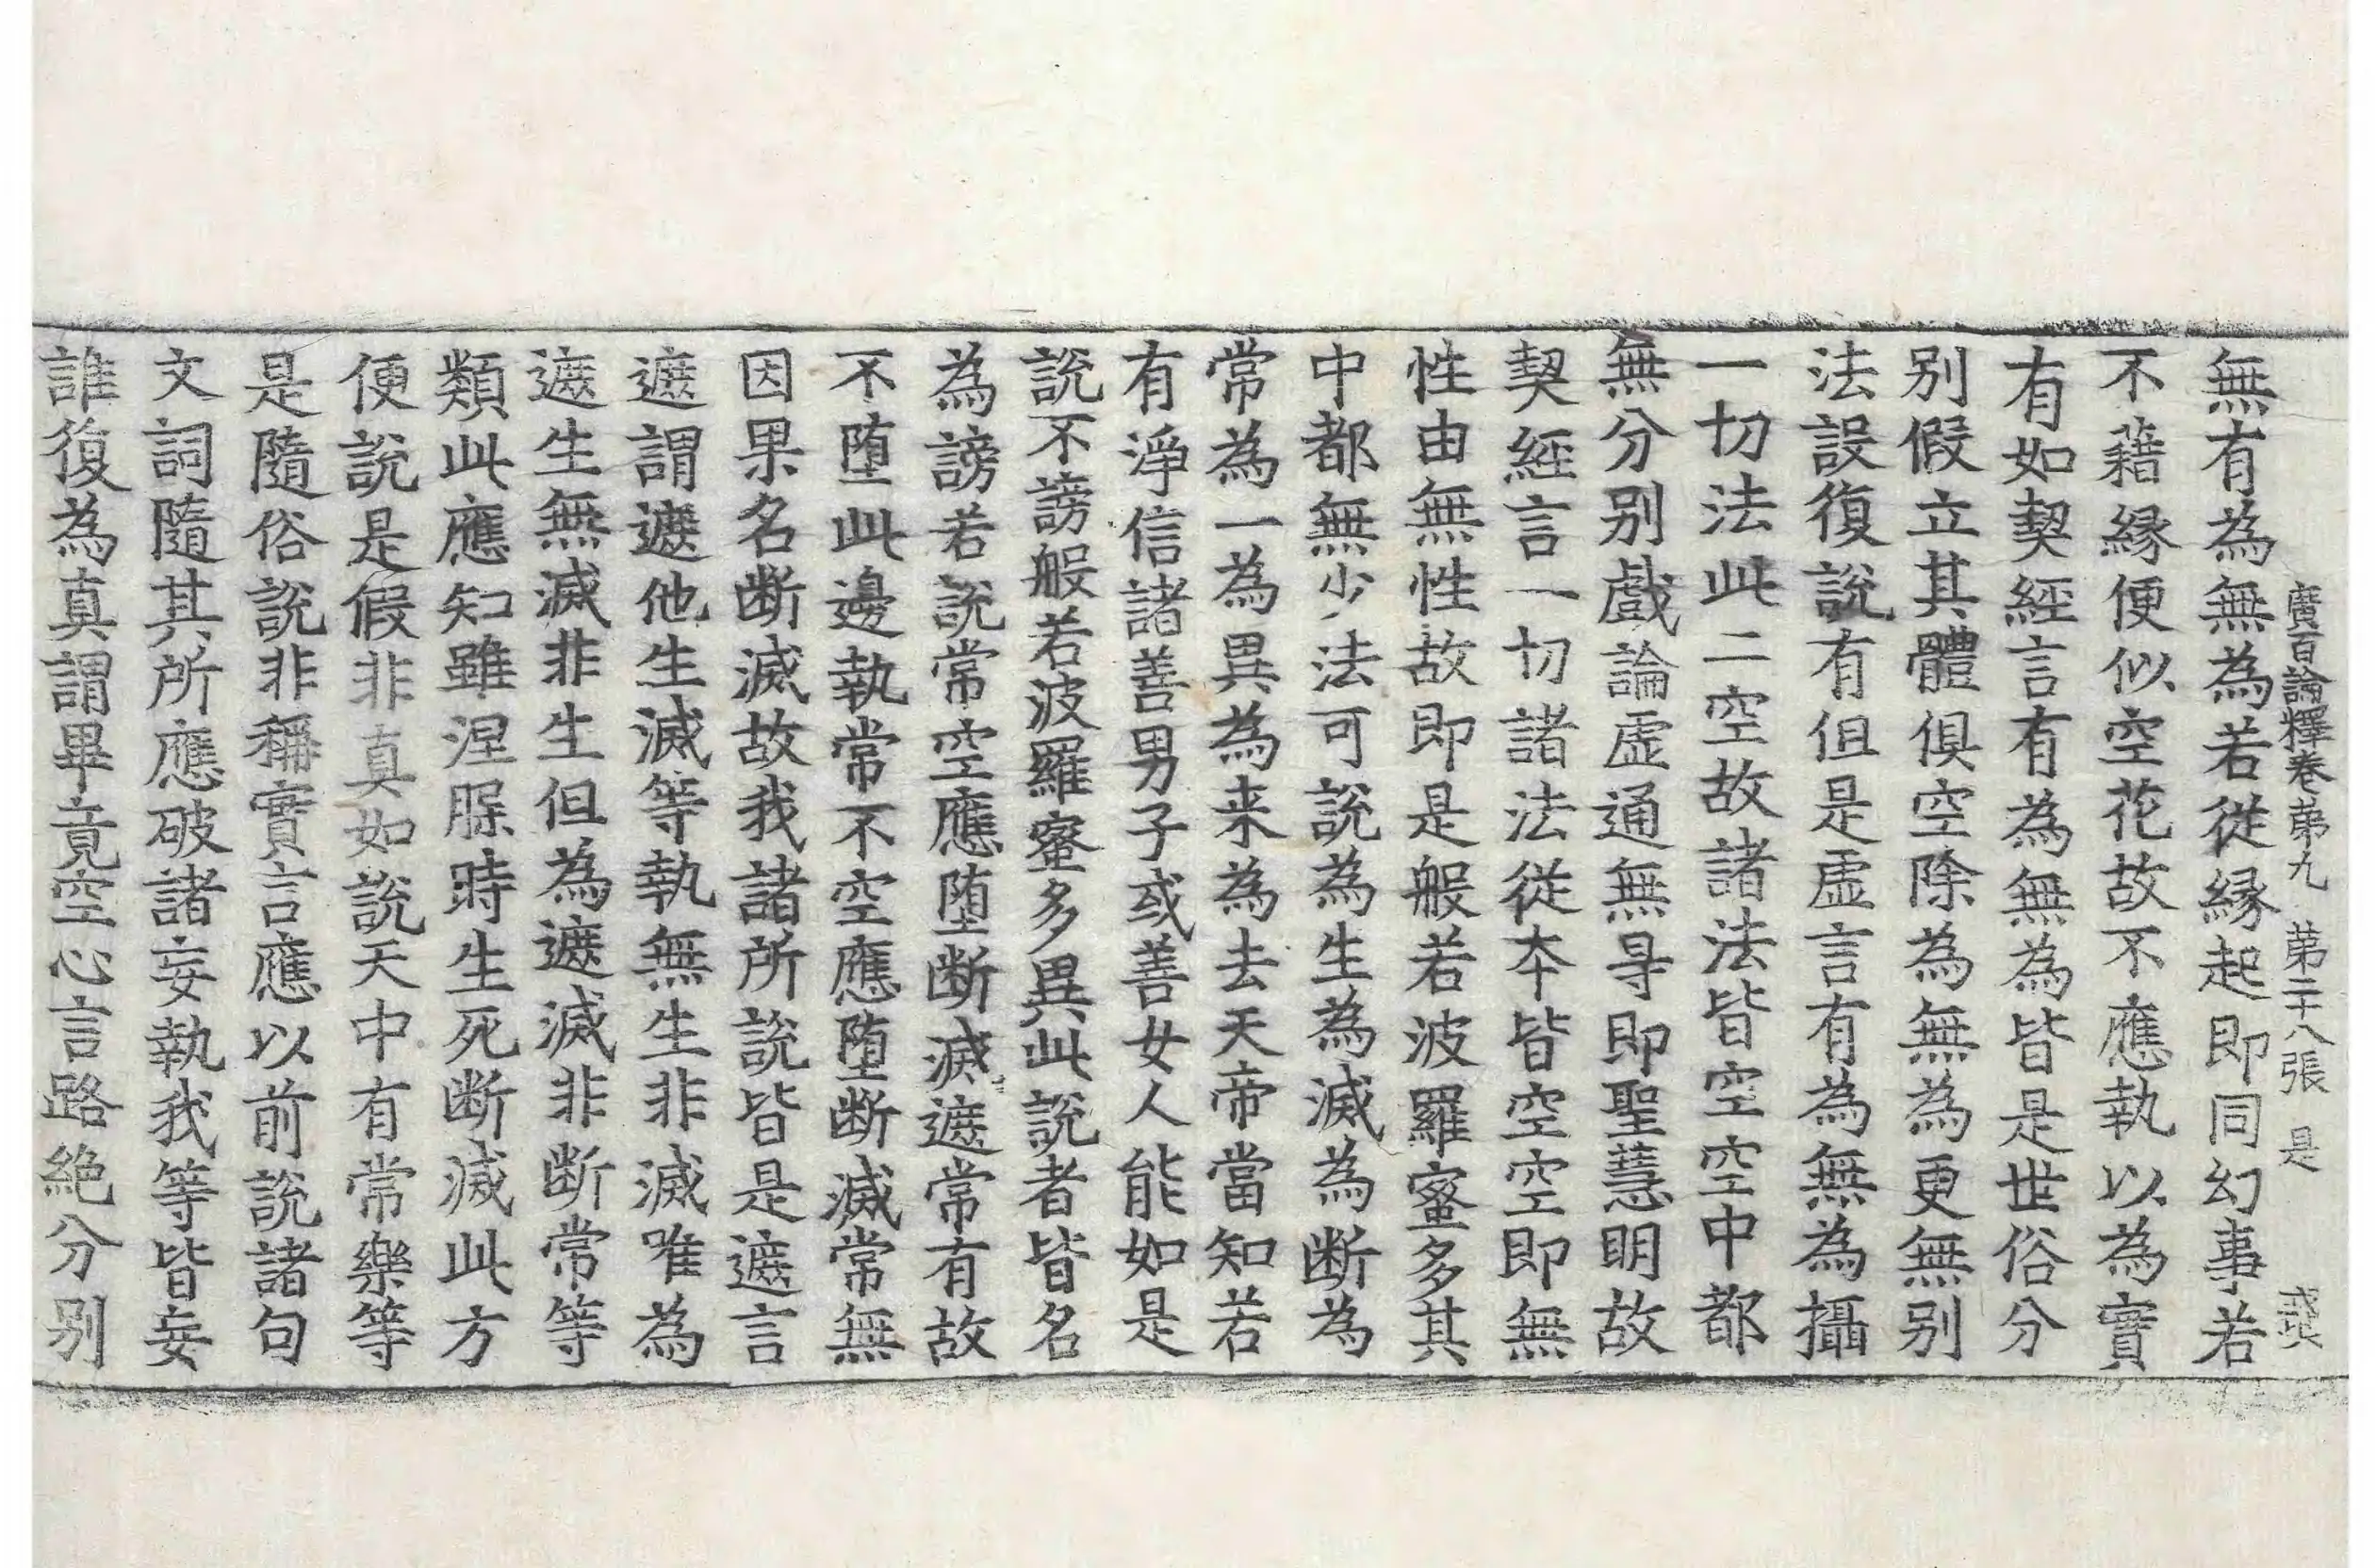 廣百論釋卷第九 第二十八張 是
無有為無為若從緣起即同幻事若
不藉緣便似空花故不應執以為實
有如契經言有為無為皆是世俗分
別假立其體俱空除為無為更無別
法設復說有但是虛言有為無為攝
一切法此二空故諸法皆空空中都
無分別戲論虛通無㝵即聖慧明故
契經言一切諸法從本皆空空即無
性由無性故即是般若波羅蜜多其
中都無少法可說為生為滅為斷為
常為一為異為来為去天帝當知若
有淨信諸善男子或善女人能如是
說不謗般若波羅蜜多異此說者皆名
為謗若說常空應墮断滅遮常有故
不墮此邊執常不空應墮断滅常無
因果名断滅故我諸所說皆是遮言
遮謂遮他生滅等執無生非滅唯為
遮生無滅非生但為遮滅非断常等
類此應知雖涅脲時生死断滅此方
便說是假非真如說天中有常樂等
是隨俗說非稱實言應以前說諸句
文詞隨其所應破諸妄執我等皆妄
誰復為真謂畢竟空心言路絕分別